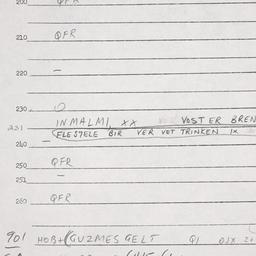 200 QFR
210 QFR
220 –
230
INMALMI, XX VOST ER BREN
231 FLESTELE BIR VER VOT TRINKEN IX
240 –
250 QFR
251 –
260 QFR
901 HOB+(GUZMES GELT QI OJX 2+